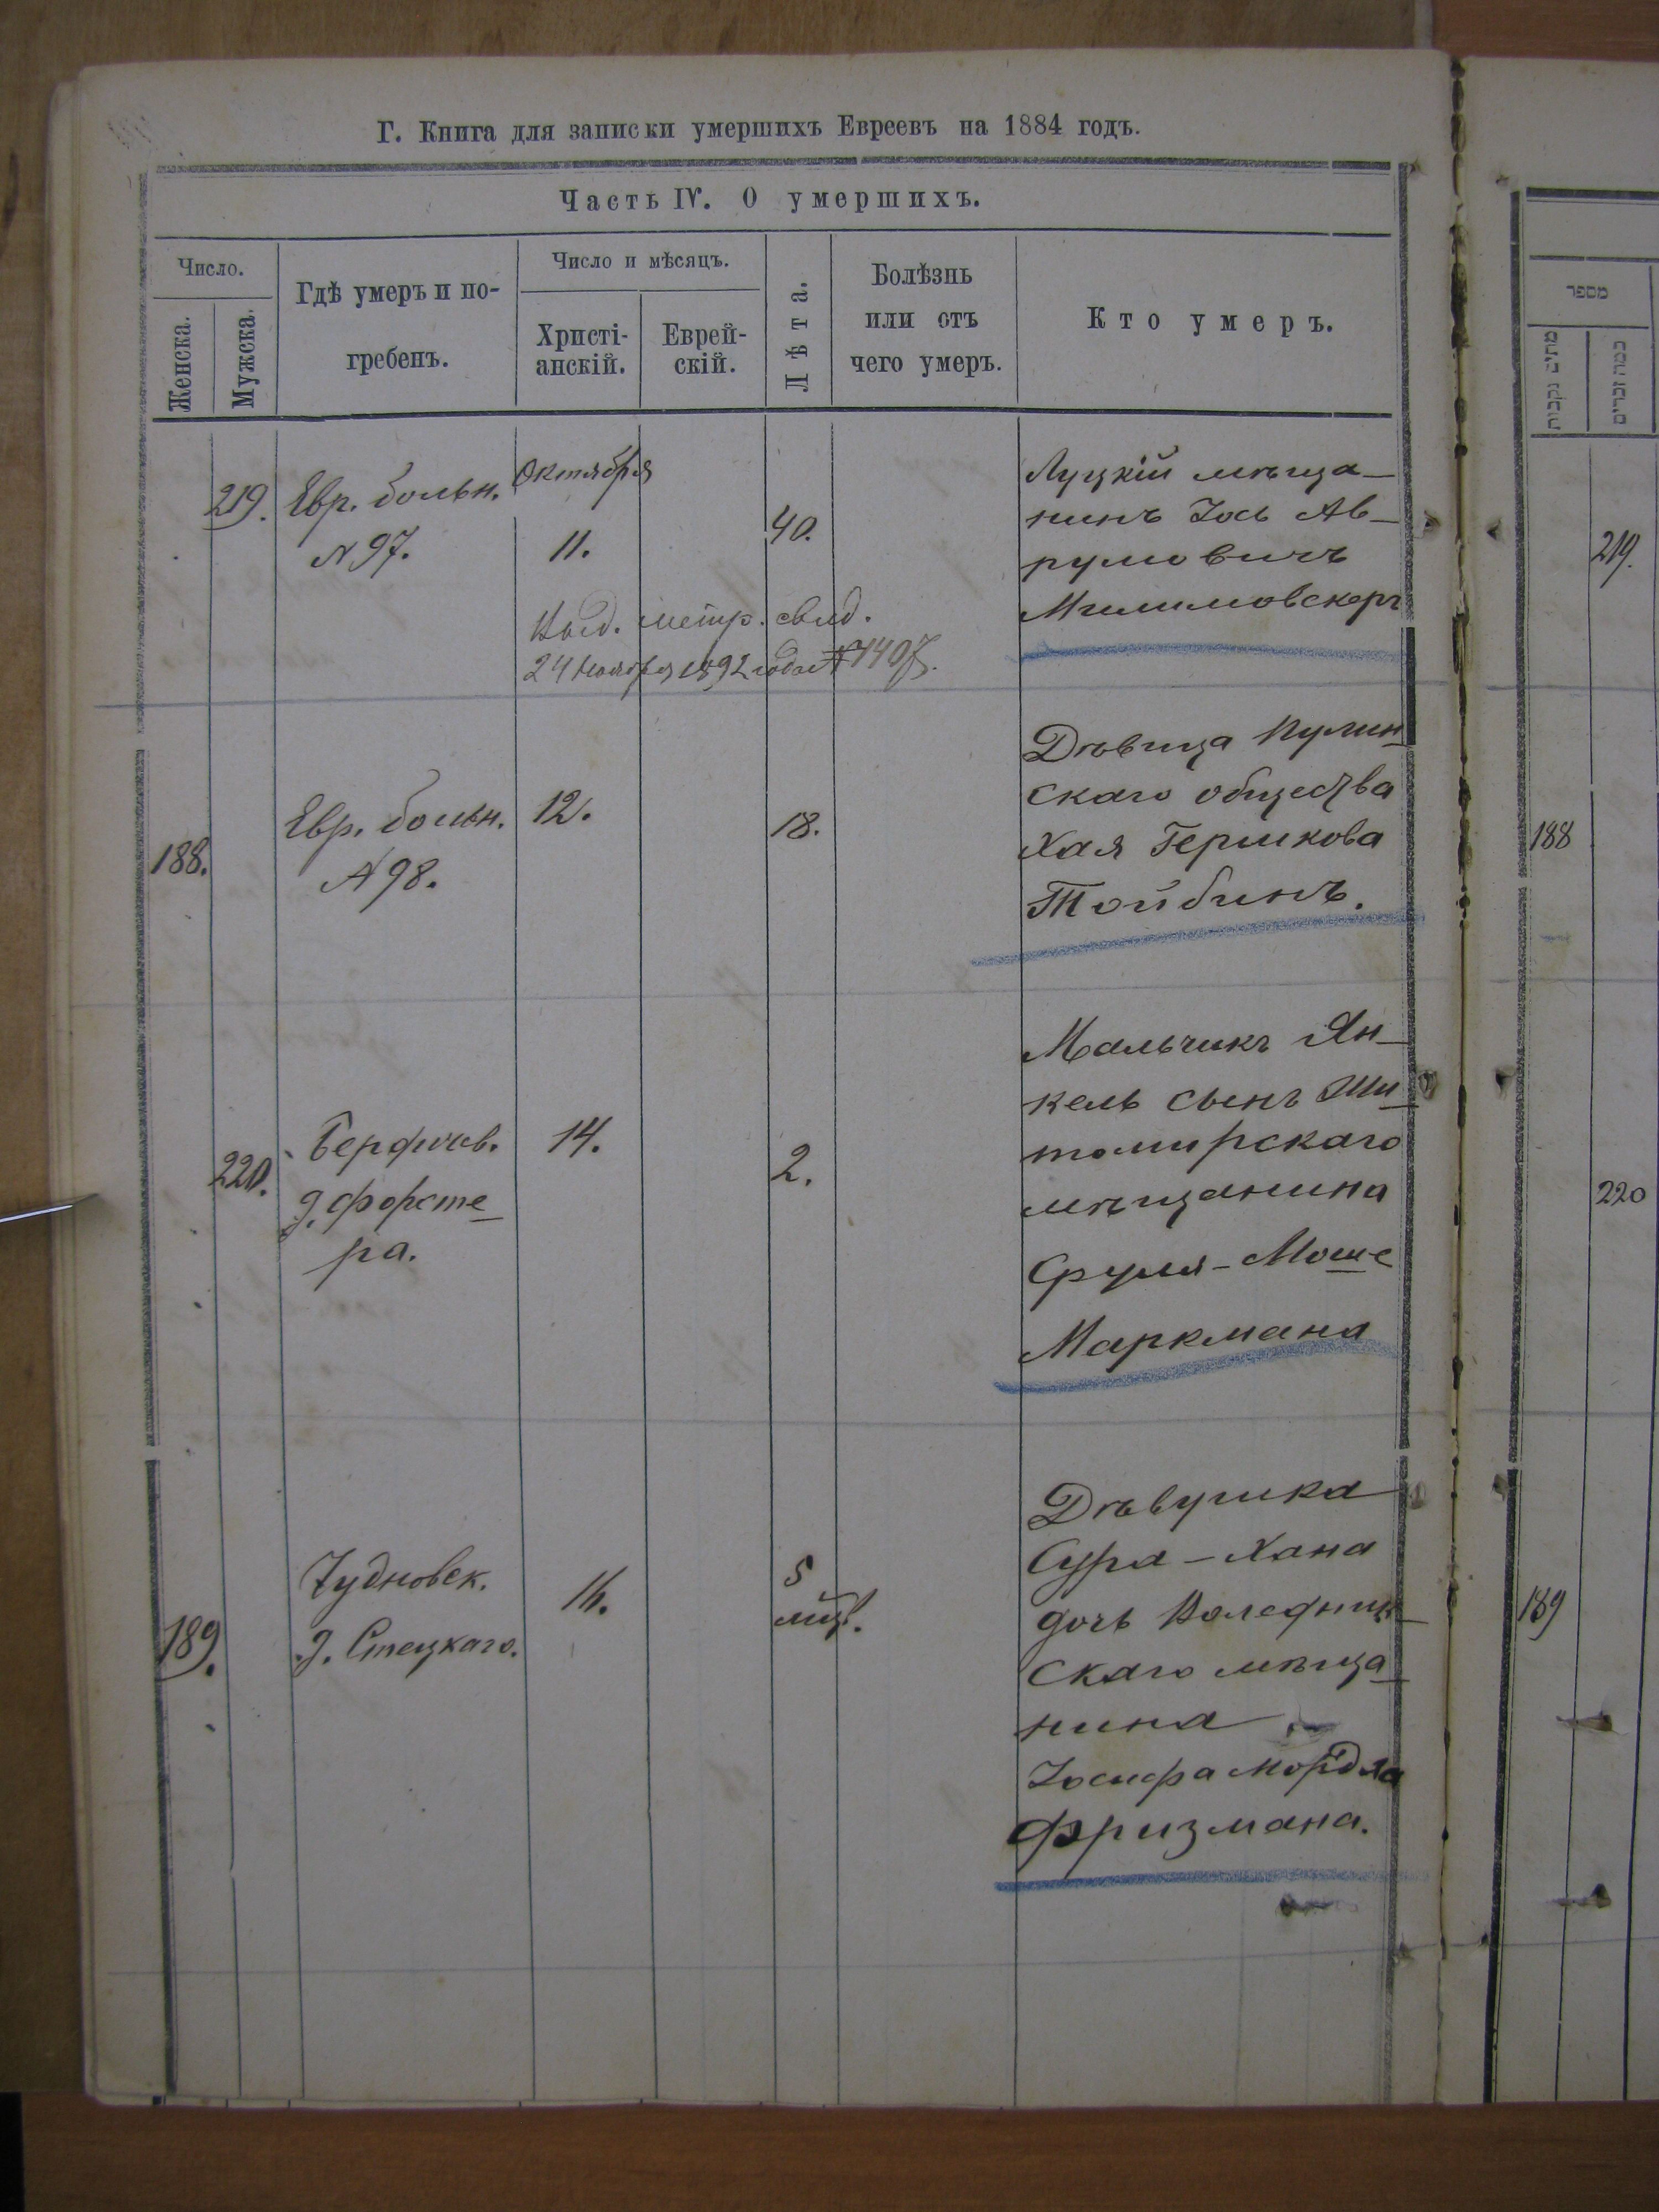 Г. Книга для записки умершихъ Евреевъ на 1884 годъ.
Часть IV. О умершихъ.
Число.
Женска.
Мужска.
Гдѣ умеръ и по-
гребенъ.
Число и мѣсяцъ.
Христі-
анскій.
Еврей-
скій.
Лѣта.
Болѣзнь
или отъ
чего умеръ.
Кто умеръ.
219.
Евр. больн.
N 97.
Октября
11.
40.
Луцкій мѣща-
нинъ Іось Ав-
румовичъ
Выд. метр. свид.
24 Ноября 1892 года №1407.
188.
Евр. больн.
N 98.
12.
18.
Дѣвица Пулин-
скаго общества
Хая Гершкова
Тойбинъ.
220.
Бердичев.
д. Форсте-
ра.
14.
2.
Мальчикъ Ян-
кель сынъ Жи-
томирскаго
мѣщанина
Сруля-Моше
Маркмана
189.
Чудновск.
д. Стецкаго.
16.
5
мѣс.
Дѣвушка
Сура-Хана
дочь
скаго мѣща-
нина
Іосифа Мордка
Фризмана.
מספר
מתים נקבות
כמה זכרים
219.
188
220
189